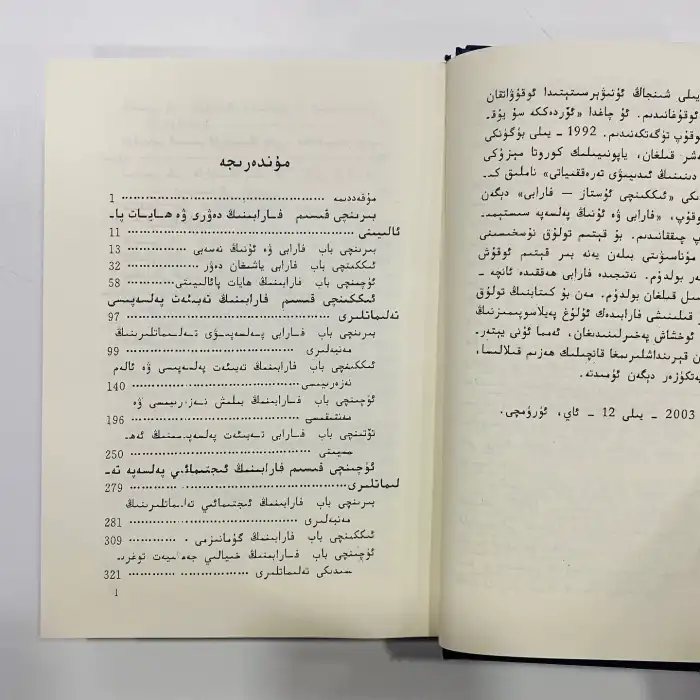 مۇندەرىجە
مۇقەددىمە ........ 1
بىرىنچى قىسىم فارابىنىڭ دەۋرى ۋە ھايات پا-
ئالىيىتى ........ 11
بىرىنچى باب فارابى ۋە ئۇنىڭ نەسەبى ........ 13
ئىككىنچى باب فارابى ياشىغان دەۋر ........ 32
ئۈچىنچى باب فارابىنىڭ ھايات پائالىيىتى ........ 58
ئىككىنچى قىسىم فارابىنىڭ تەبىئەت پەلسەپىسى
تەلىماتلىرى ........ 97
بىرىنچى باب فارابى پەلسەپىۋى تەلىماتلىرىنىڭ
مەنبەلىرى ........ 99
ئىككىنچى باب فارابىنىڭ تەبىئەت پەلسەپىسى ۋە ئالەم
نەزەرىيىسى ........ 140
ئۈچىنچى باب فارابىنىڭ بىلىش نەزەرىيىسى ۋە
مەنتىقىسى ........ 196
تۆتىنچى باب فارابى تەبىئەت پەلسەپىسىنىڭ ئەھ-
مىيىتى ........ 250
ئۈچىنچى قىسىم فارابىنىڭ ئىجتىمائىي پەلسەپە تە-
لىماتلىرى ........ 279
بىرىنچى باب فارابىنىڭ ئىجتىمائىي تەلىماتلىرىنىڭ
مەنبەلىرى ........ 281
ئىككىنچى باب فارابىنىڭ گۇمانىزمى ........ 309
ئۈچىنچى باب فارابىنىڭ خىيالىي جەمئىيەت توغرى-
سىدىكى تەلىماتلىرى ........ 321
1
يىلى شىنجاڭ ئۇنىۋېرسىتېتىدا ئوقۇۋاتقان
ئوقۇغانىدىم. ئۇ چاغدا «ئۆردەككە سۇ يۇق-
وقۇپ تۈگەتكەنىدىم. 1992 - يىلى بۈگۈنكى
ەشر قىلغان، ياپونىيىلىك كوروتا
دىنىنىڭ ئىدىيىۋى تەرەققىياتى» ناملىق كى-
ىكى «ئىككىنچى ئۇستاز — فارابى» دېگەن
وقۇپ، «فارابى ۋە ئۇنىڭ پەلسەپە سىستېمى-
پ چىققانىدىم. بۇ قېتىم تولۇق نۇسخىسىنى
مۇناسىۋىتى بىلەن يەنە بىر قېتىم ئوقۇش
ەر بولدۇم. نەتىجىدە فارابى ھەققىدە ئانچە -
سىل قىلغان بولدۇم. مەن بۇ كىتابنىڭ تولۇق
قىلىنىشى فارابىدەك ئۇلۇغ پەيلاسوپىمىزنىڭ
ئوخشاش پەخىرلىنىدىغان، ئەمما ئۇنى يېتەر-
ن قېرىنداشلىرىمغا قانچىلىك ھەزىم قىلالىسا،
ەتكۈزەر دېگەن ئۈمىدتە.
2003 - يىلى 12 - ئاي، ئۈرۈمچى.